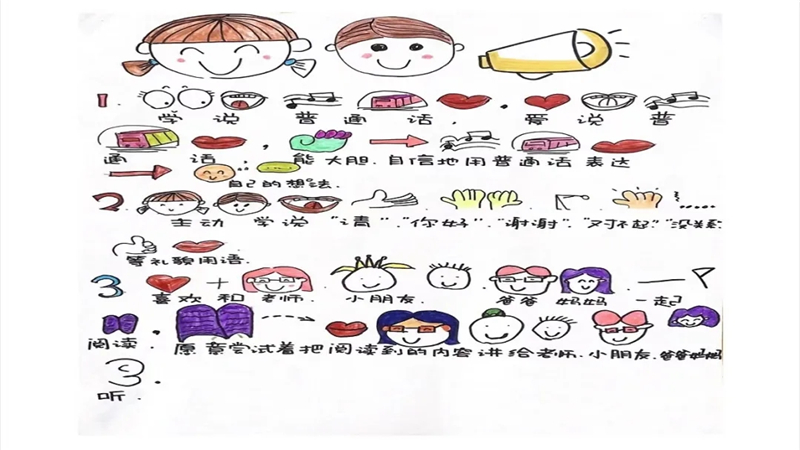 1. 学说普通话,爱说普
通话,能大胆.自信地用普通话表达
自己的想法.
2. 主动学说"请"."你好"."谢谢"."对不起""没关系
等礼貌用语.
3 喜欢和老师.小朋友.爸爸妈妈一起
阅读.愿意尝试着把阅读到的内容讲给老师.小朋友.爸爸妈妈
听.